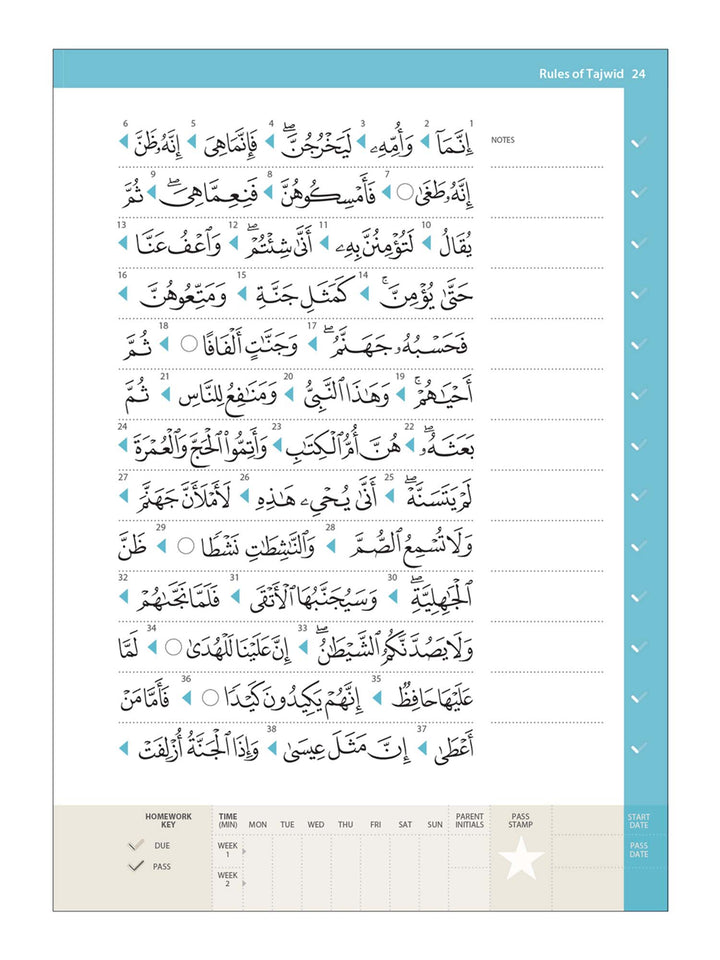 Rules of Tajwid 24
NOTES
1 إِنَّمَآ 2 وَأُمِّهِۦ 3 لَيَخْرُجُنَّ ۖ 4 فَإِنَّمَا هِىَ 5 إِنَّهُۥ ظَنَّ 6
إِنَّهُۥ طَغَىٰ ○ 7 فَأَمْسِكُوهُنَّ 8 فَنِعِمَّا هِىَ ۖ 9 ثُمَّ
يُقَالُ 10 لَتُؤْمِنُنَّ بِهِۦ 11 أَنَّىٰ شِئْتُمْ ۖ 12 وَٱعْفُ عَنَّا 13
حَتَّىٰ يُؤْمِنَّ ۚ 14 كَمَثَلِ جَنَّةٍ 15 وَمَتِّعُوهُنَّ 16
فَحَسْبُهُۥ جَهَنَّمُ ۖ 17 وَجَنَّٰتٍ أَلْفَافًا ○ 18 ثُمَّ
أَحْيَٰهُمْ ۚ 19 وَهَٰذَا ٱلنَّبِىُّ 20 وَمَنَٰفِعُ لِلنَّاسِ 21 ثُمَّ
بَعَثَهُۥ ۖ 22 هُنَّ أُمُّ ٱلْكِتَٰبِ 23 وَأَتِمُّوا۟ ٱلْحَجَّ وَٱلْعُمْرَةَ 24
لَمْ يَتَسَنَّهْ ۖ 25 أَنَّىٰ يُحْىِۦ هَٰذِهِ 26 لَأَمْلَأَنَّ جَهَنَّمَ 27
وَلَا تُسْمِعُ ٱلصُّمَّ 28 وَٱلنَّٰشِطَٰتِ نَشْطًا ○ 29 ظَنَّ
ٱلْجَٰهِلِيَّةِ ۖ 30 وَسَيُجَنَّبُهَا ٱلْأَتْقَى 31 فَلَمَّا نَجَّىٰهُمْ 32
وَلَا يَصُدَّنَّكُمُ ٱلشَّيْطَٰنُ ۖ 33 إِنَّ عَلَيْنَا لَلْهُدَىٰ ○ 34 لَمَّا
عَلَيْهَا حَافِظٌ 35 إِنَّهُمْ يَكِيدُونَ كَيْدًا ○ 36 فَأَمَّا مَنْ
أَعْطَىٰ 37 إِنَّ مَثَلَ عِيسَىٰ 38 وَإِذَا ٱلْجَنَّةُ أُزْلِفَتْ
HOMEWORK KEY
DUE
PASS
TIME (MIN) MON TUE WED THU FRI SAT SUN PARENT INITIALS PASS STAMP
WEEK 1
WEEK 2
START DATE
PASS DATE